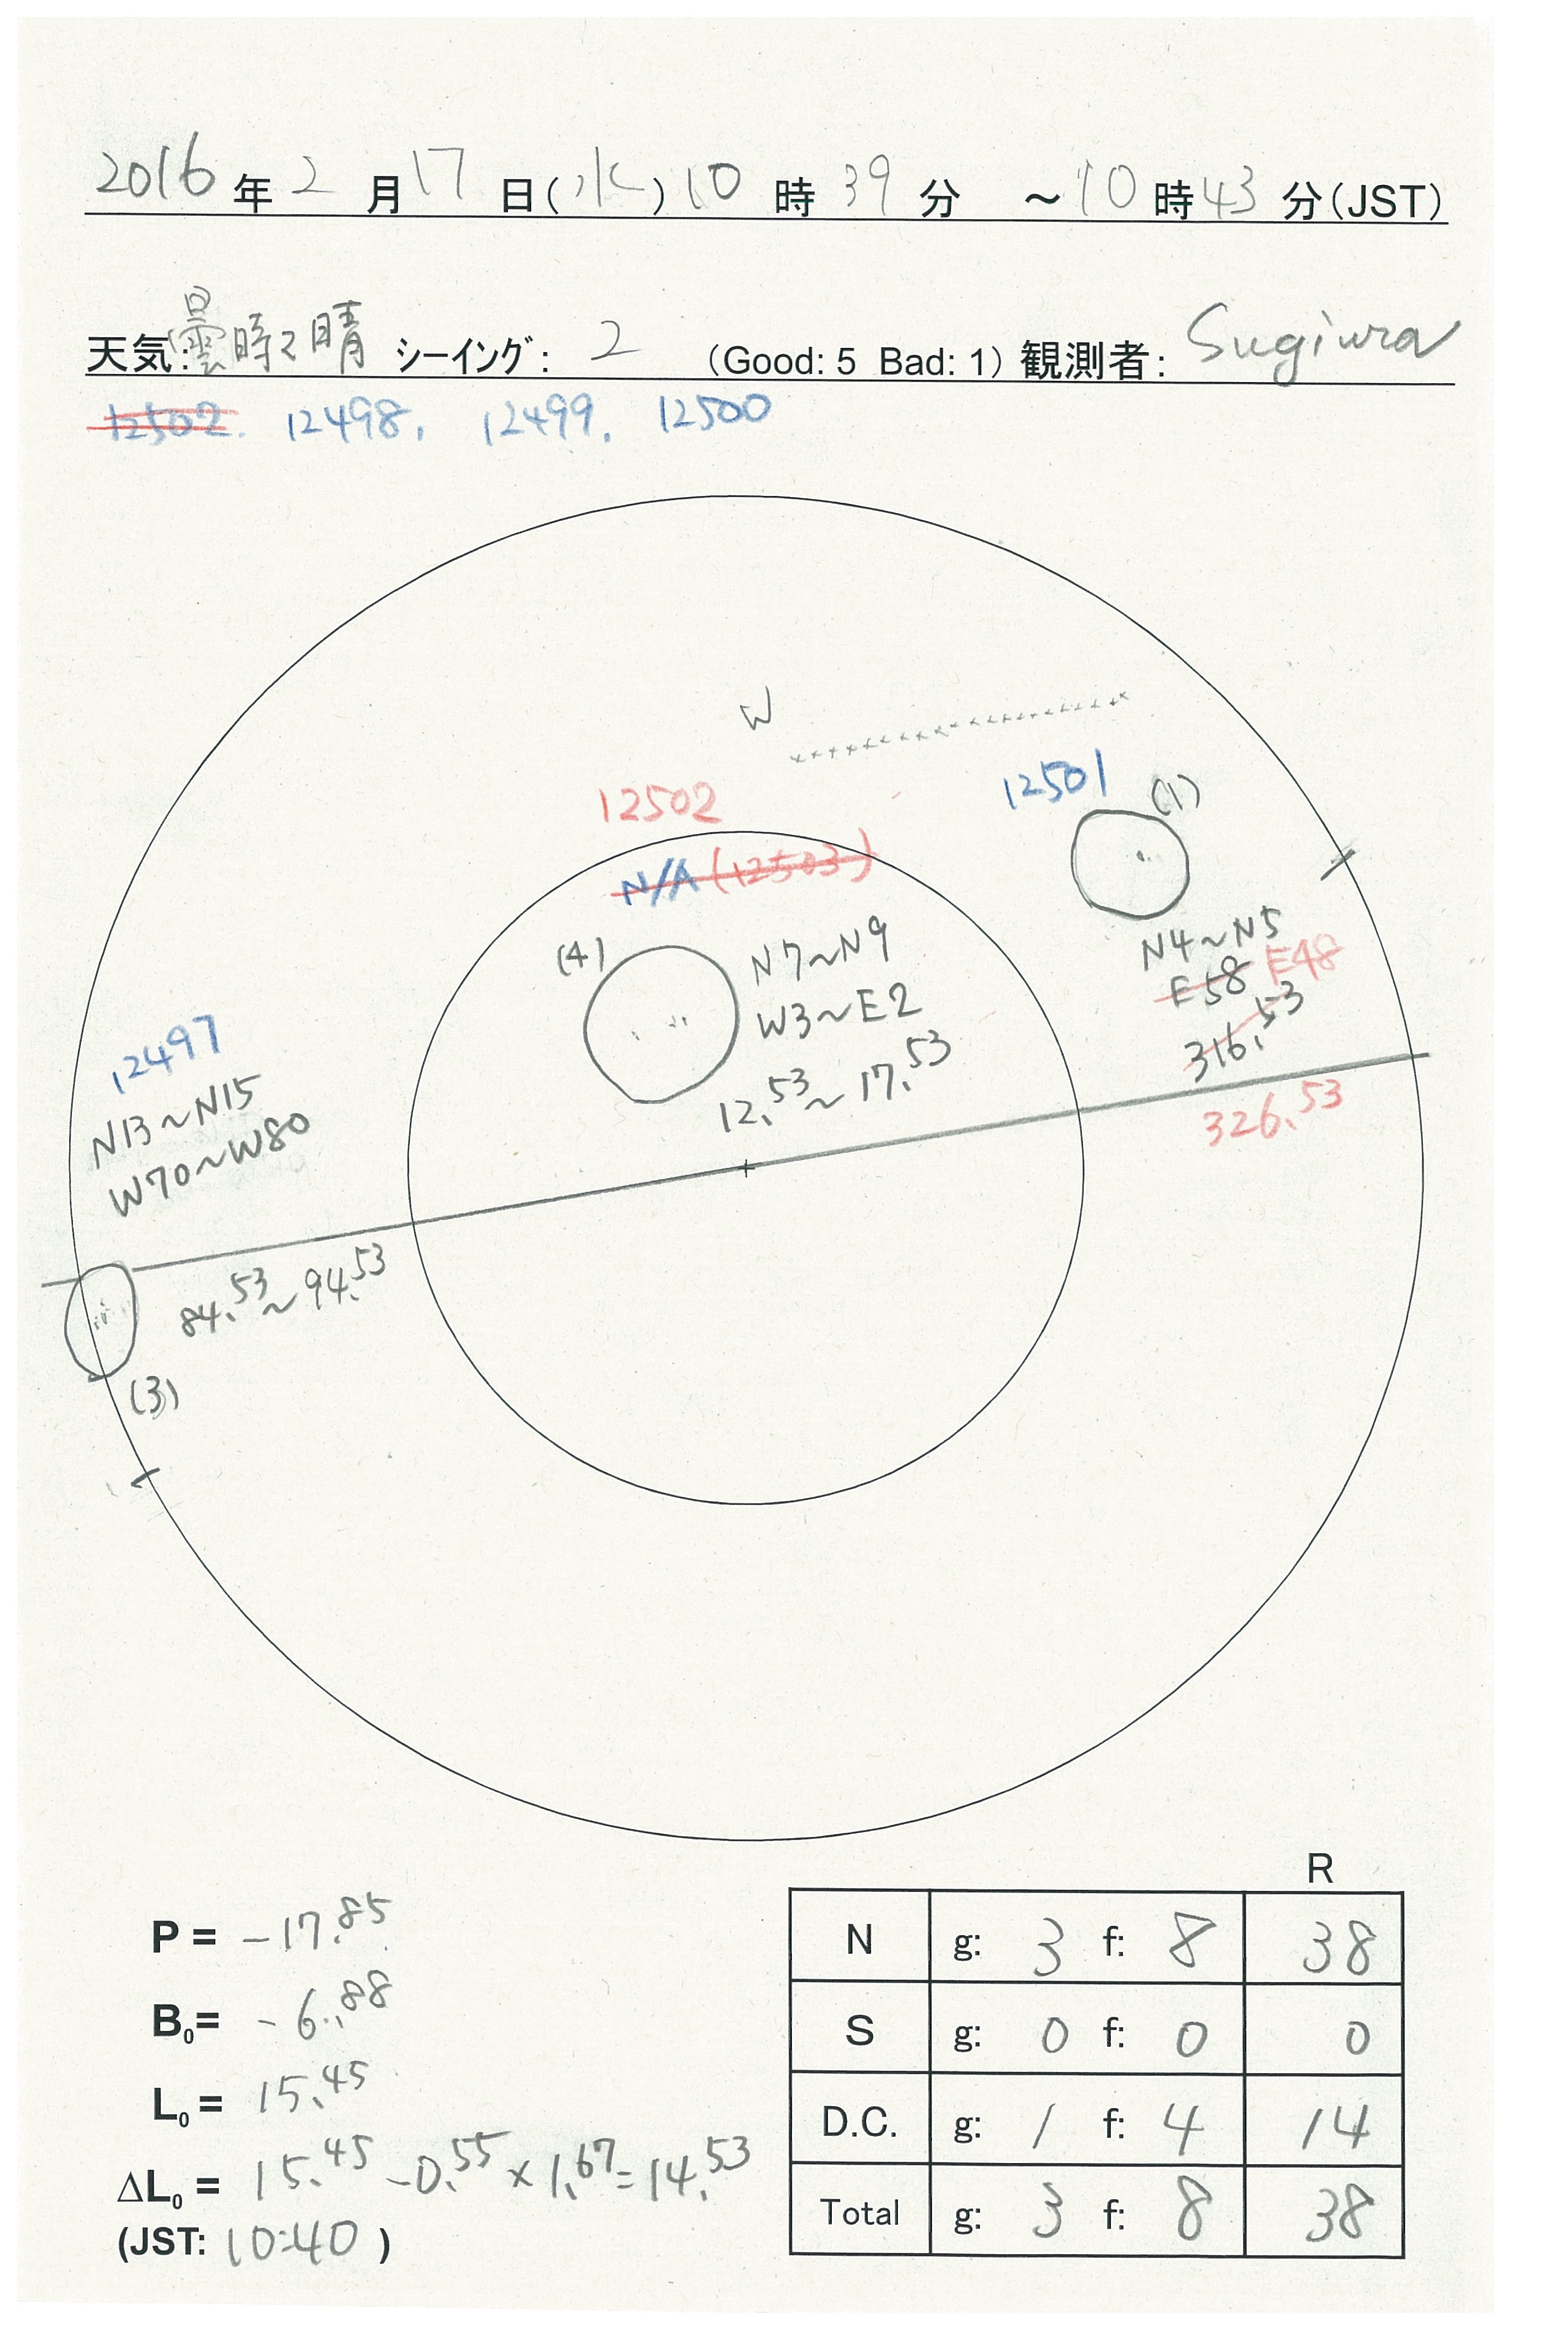 2016年2月17日(水)10時39分 ～10時43分(JST)
天気:曇時々晴 シーイング: 2 (Good: 5 Bad: 1) 観測者: Sugiura
12502. 12498, 12499, 12500
W
12501
(1)
12502
N/A (12503)
(4)
N7~N9
W3~E2
12.53~17.53
N4~N5
E58 E48
316.53
326.53
12497
N13~N15
W70~W80
84.53~94.53
(3)
R
P = -17.85
B0= -6.88
L0= 15.45
ΔL0= 15.45-0.55×1.67=14.53
(JST: 10:40)
N g: 3 f: 8 38
S g: 0 f: 0 0
D.C. g: 1 f: 4 14
Total g: 3 f: 8 38